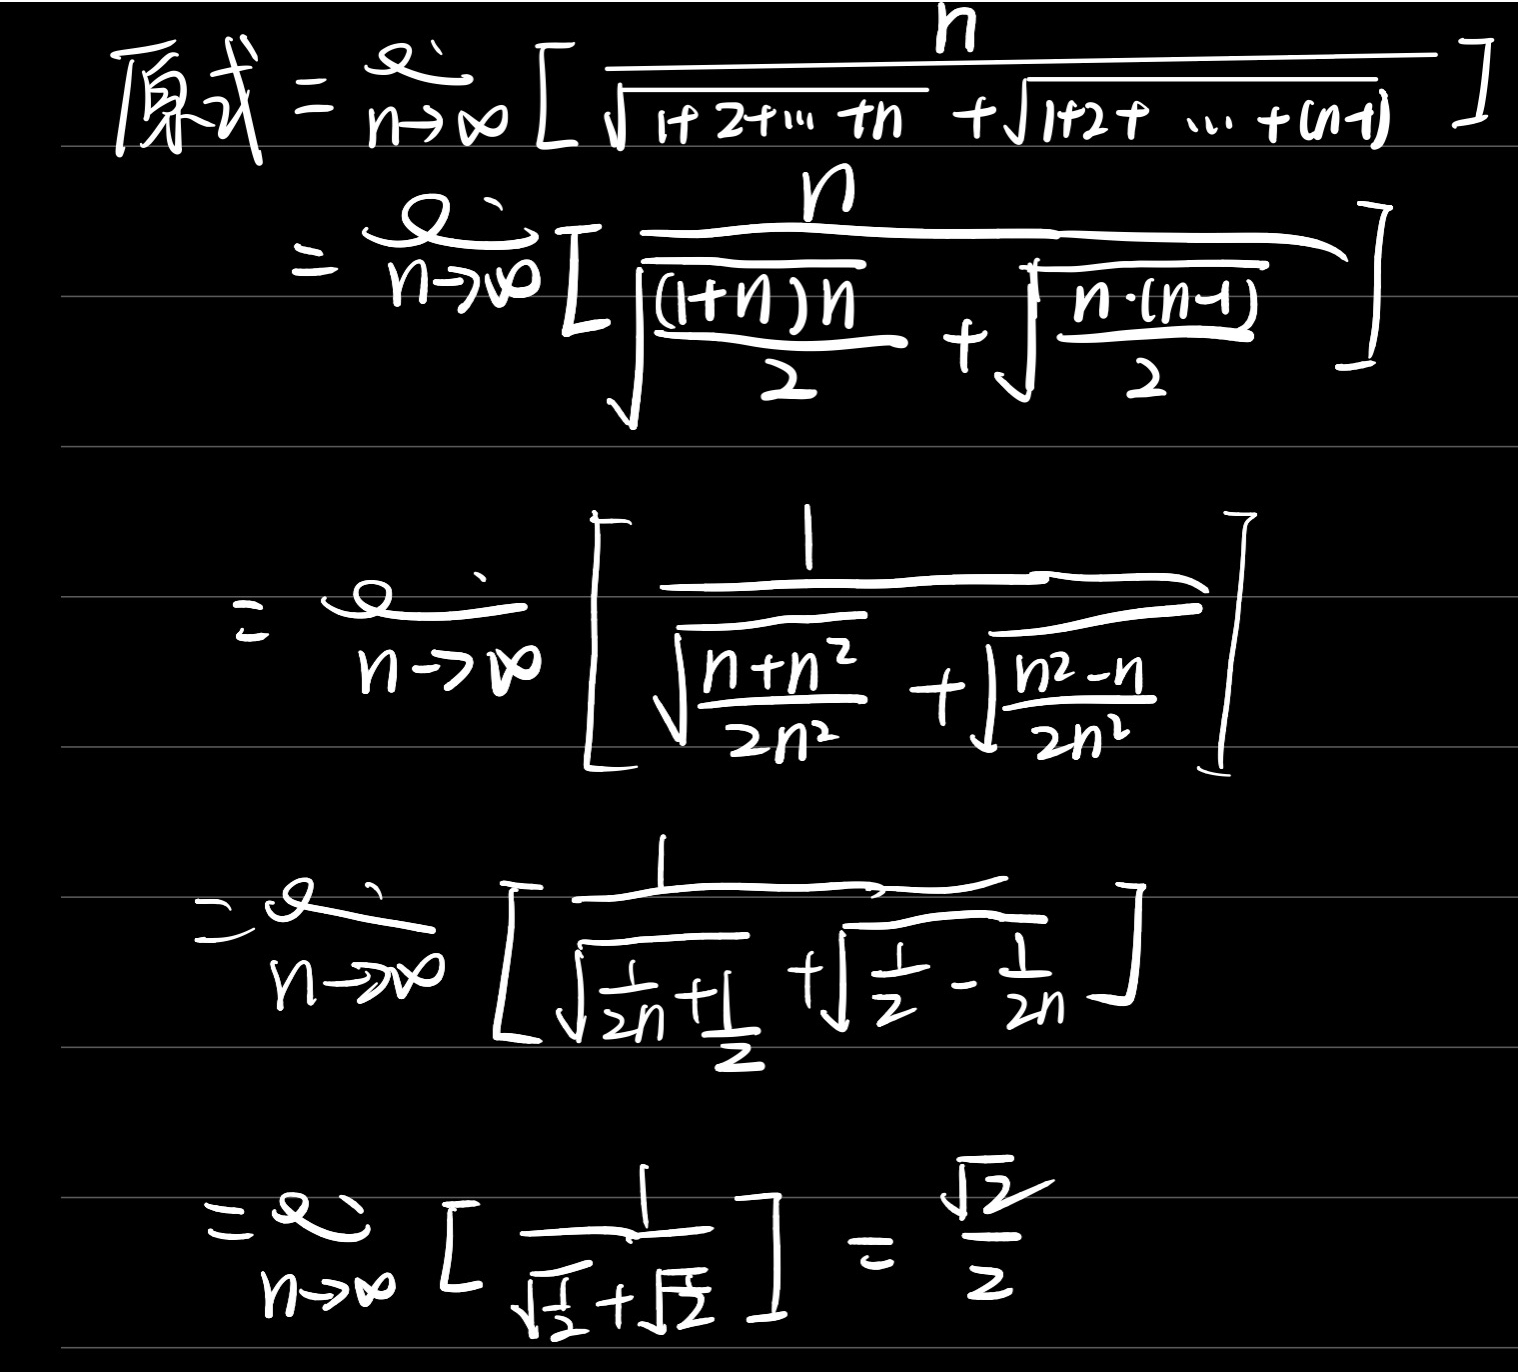 原式 = lim n→∞ [ n / (√(1+2+…+n) + √(1+2+…+(n-1))) ]
= lim n→∞ [ n / (√((1+n)n / 2) + √(n·(n-1) / 2)) ]
= lim n→∞ [ 1 / (√((n+n²) / 2n²) + √((n²-n) / 2n²)) ]
= lim n→∞ [ 1 / (√(1/2n + 1/2) + √(1/2 - 1/2n)) ]
= lim n→∞ [ 1 / (√(1/2) + √(1/2)) ] = √2 / 2